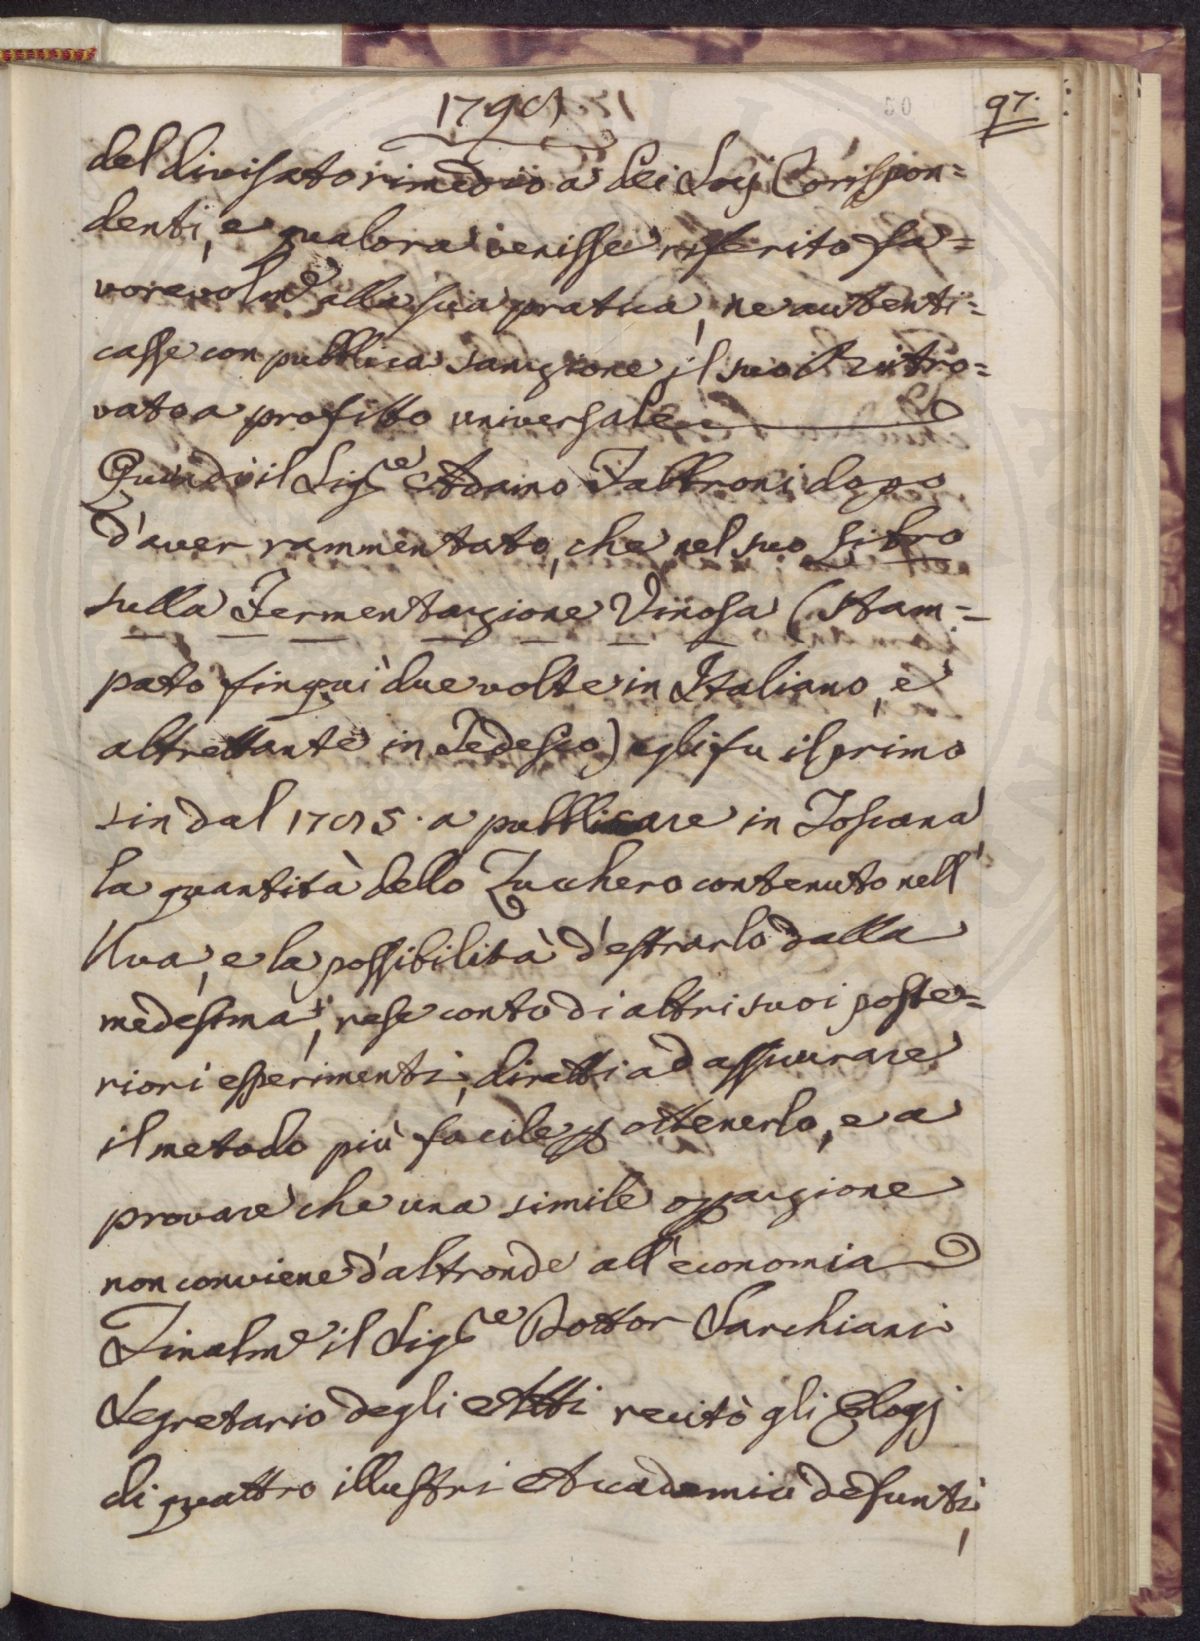 1798
97.
del divisato rimedio a dei Socj Corrispon=
denti, e qualora venisse riferito fa=
vorevolm.e alla sua pratica, ne autenti=
casse con pubblica sanzione il suo Ritro=
vato a profitto universale
Quindi il Sig.re Adamo Fabbroni dopo
d'aver rammentato, che nel suo Libro
sulla Fermentazione Vinosa (stam=
pato finqui due volte in Italiano, e
altrettante in Tedesco) egli fu il primo
sin dal 1785. a pubblicare in Toscana
la quantità dello Zucchero contenuto nell'
Uva, e la possibilità d'estrarlo dalla
medesima, rese conto di altri suoi poste=
riori esperimenti, diretti ad assicurare
il metodo più facile p ottenerlo, e a
provare che una simile oparzione
non conviene d'altronde all'economia
Finalm.e il Sig.re Dottor Sarchiani
Segretario degli Atti recitò gli Elogj
di quattro illustri Accademici defunti,